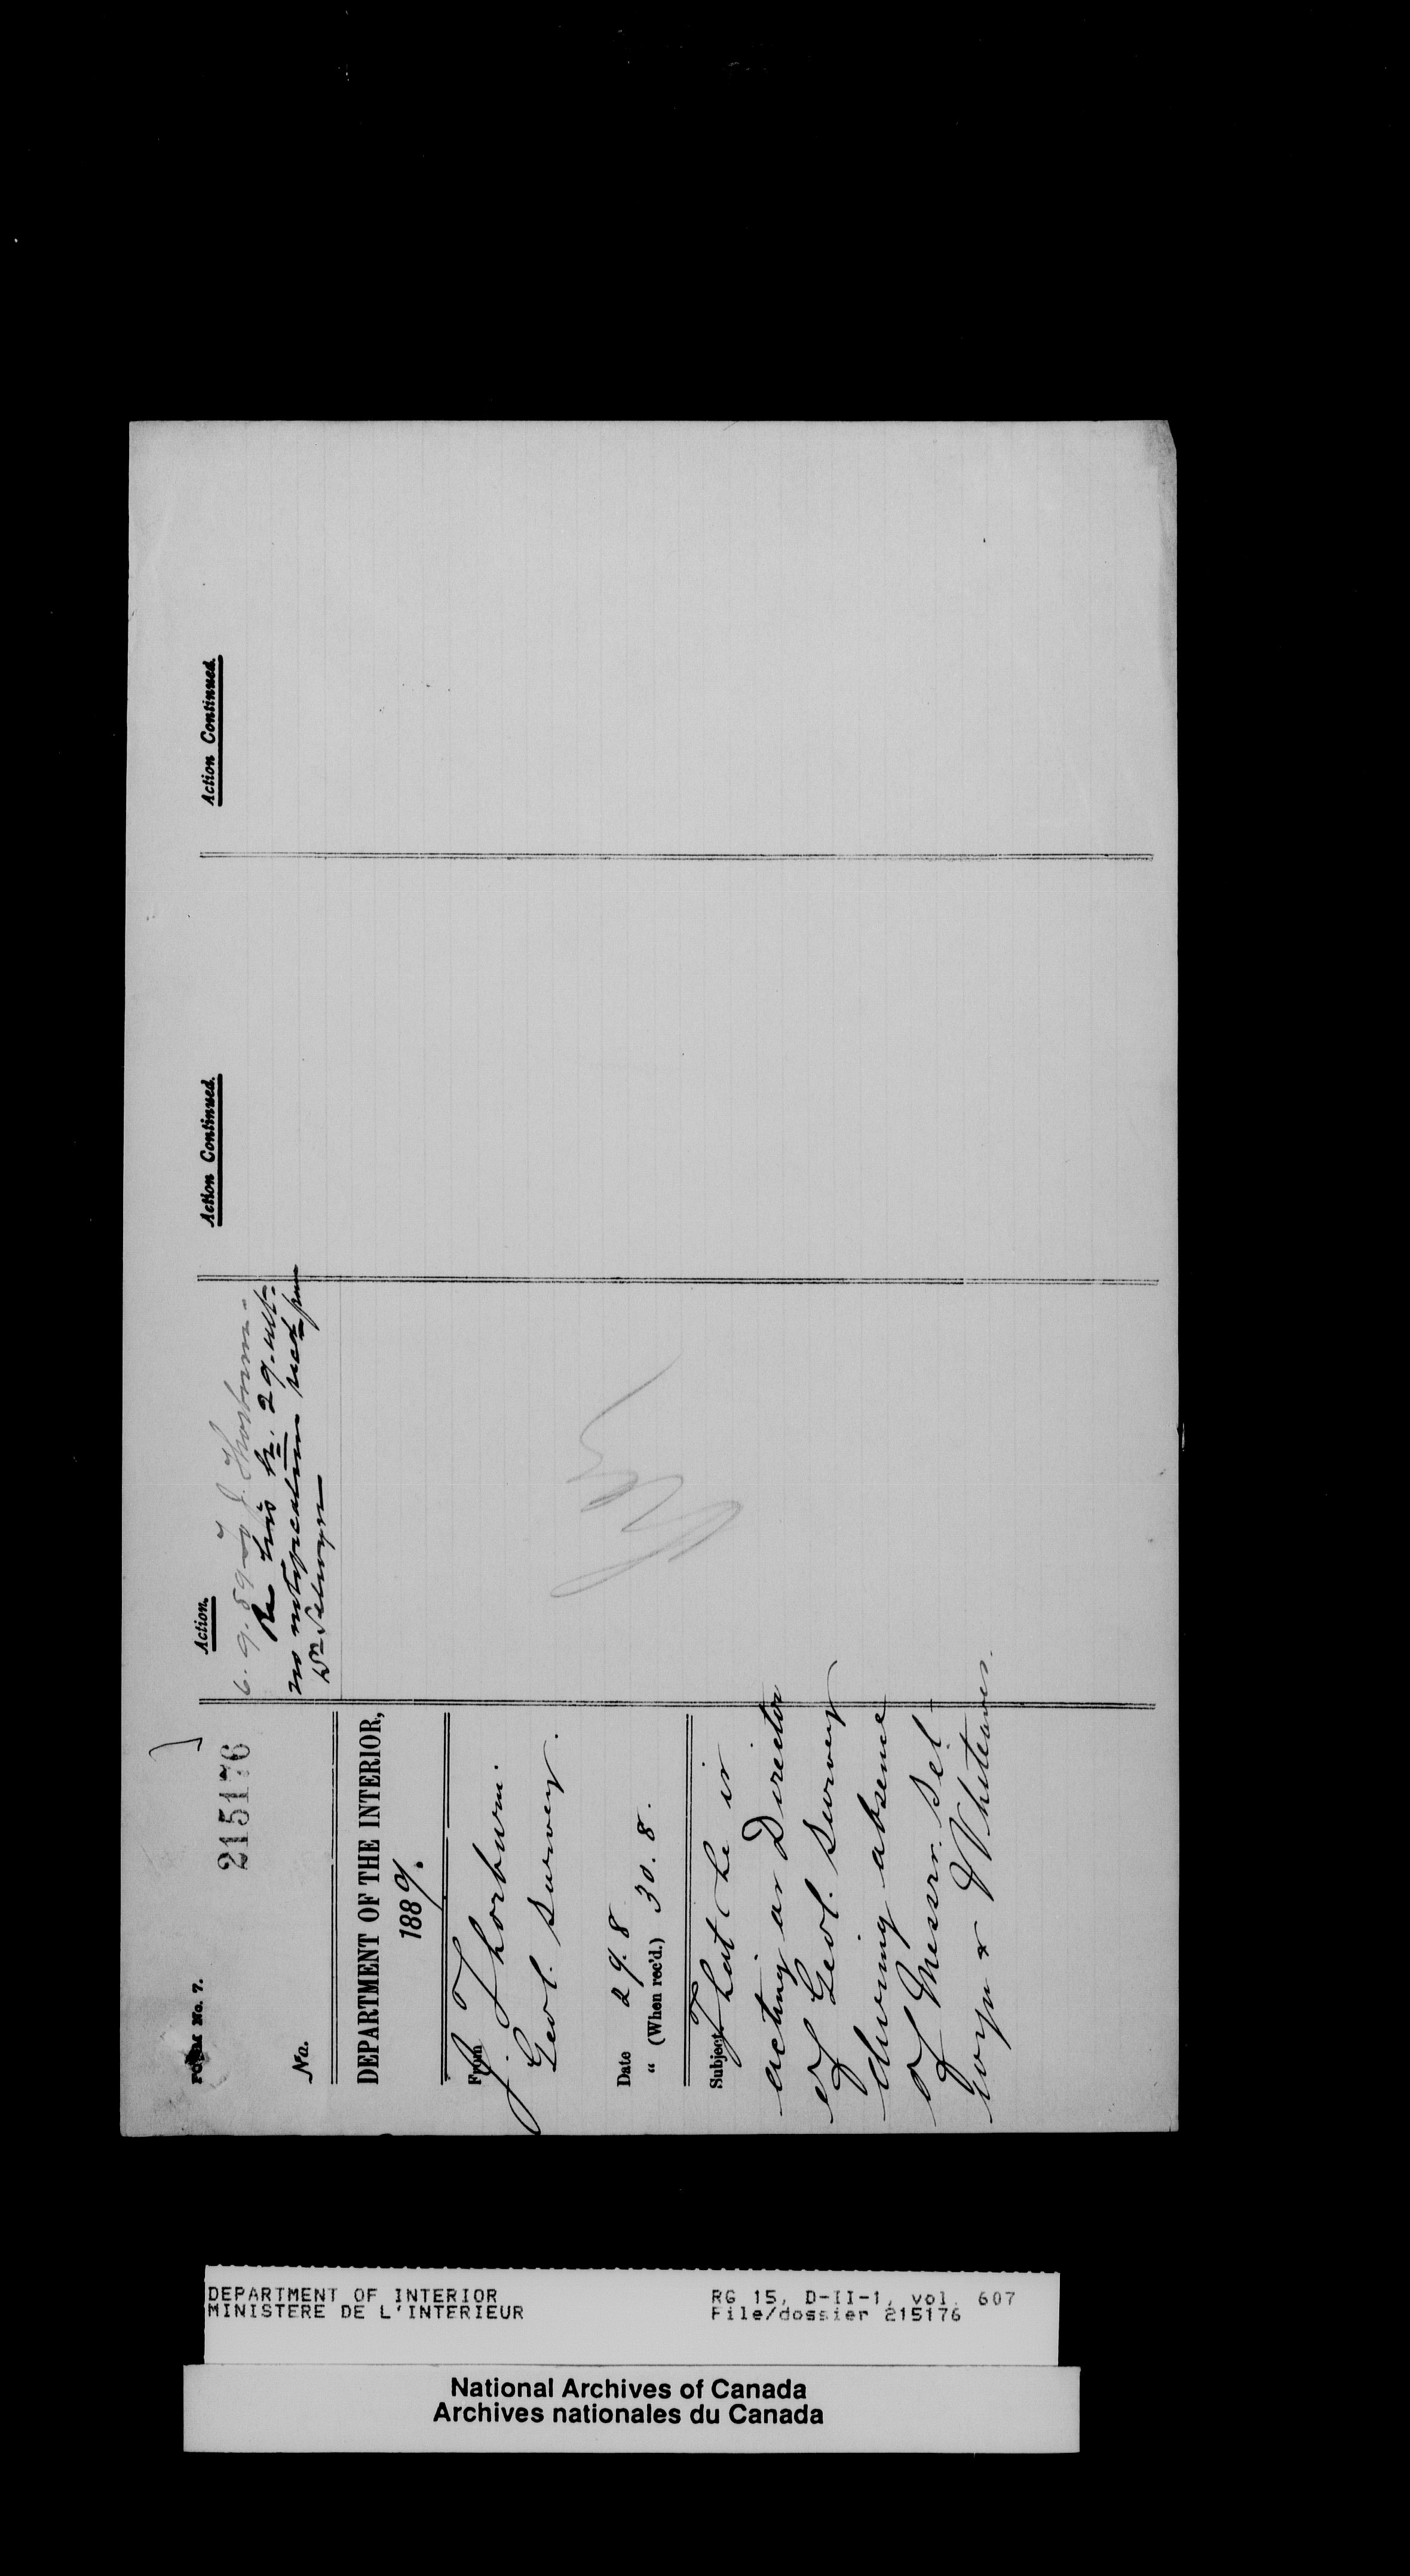 FORM No. 7.
215176
No.
DEPARTMENT OF THE INTERIOR,
1889.
From J. Thorburn.
Geol. Survey.
Date 29.8
" (When rec'd.) 30.8.
Subject, That he is
acting as Director
of Geol. Survey
during absence
of Messrs. Sel-
wyn & Whiteaves.
Action.
6.9.89 To J. Thorburn-
Re his ltr. 29. ult-
no notification recd from
Dr Selwyn
Action Continued.
Action Continued.
DEPARTMENT OF INTERIOR
MINISTERE DE L'INTERIEUR
RG 15, D-II-1, vol. 607
File/dossier 215176
National Archives of Canada
Archives nationales du Canada